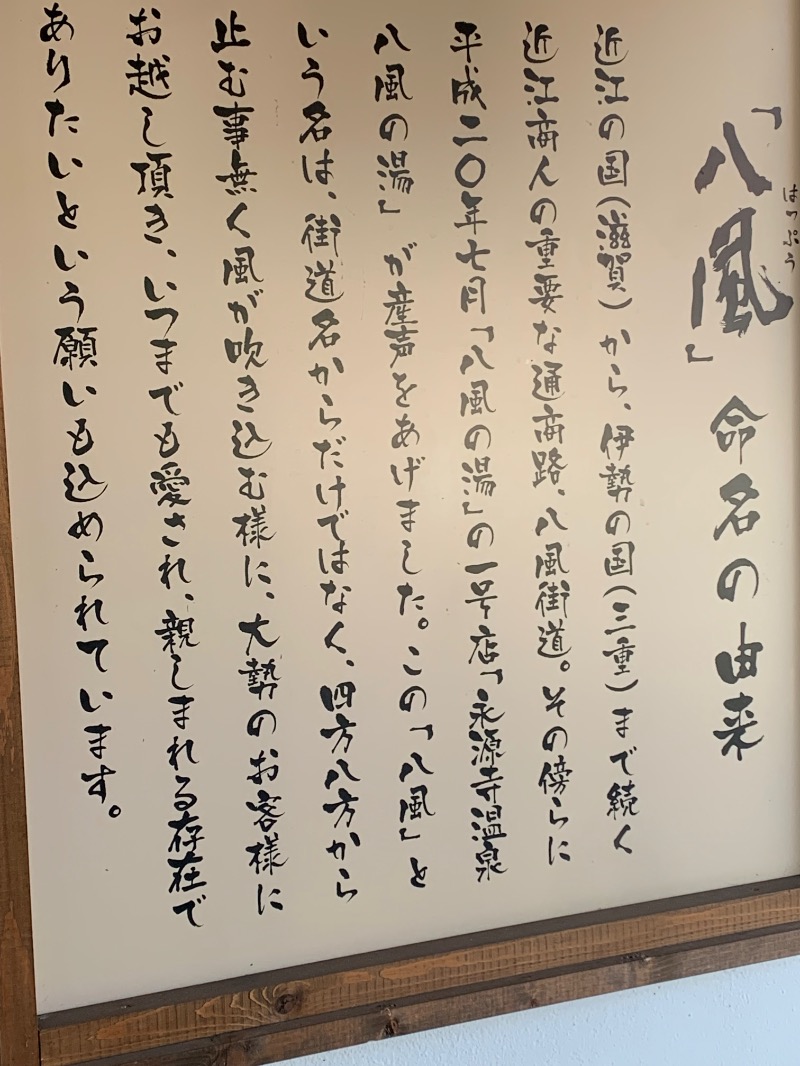 はっぷう
「八風」命名の由来
近江の国(滋賀)から、伊勢の国(三重)まで続く
近江商人の重要な通商路、八風街道。その傍らに
平成二〇年七月「八風の湯」の一号店「永源寺温泉
八風の湯」が産声をあげました。この「八風」と
いう名は、街道名からだけではなく、四方八方から
止む事無く風が吹き込む様に、大勢のお客様に
お越し頂き、いつまでも愛され、親しまれる存在で
ありたいという願いも込められています。